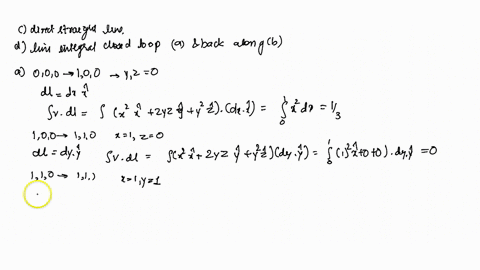 c) direct straight line.
d) line integral closed loop (a) & back along (b)
a) 0,0,0 → 1,0,0 → y,z = 0
dl = dx x̂
∫v.dl = ∫ (x² x̂ + 2yz ŷ + y² ẑ).(dx.x̂) = ∫₀¹ x² dx = 1/3
1,0,0 → 1,1,0 x=1, z=0
dl = dy.ŷ ∫v.dl = ∫(x² x̂ + 2yz ŷ + y² ẑ)(dy.ŷ) = ∫₀¹ (1)² x̂+0+0).dy.ŷ = 0
1,1,0 → 1,1,) x=1, y=1